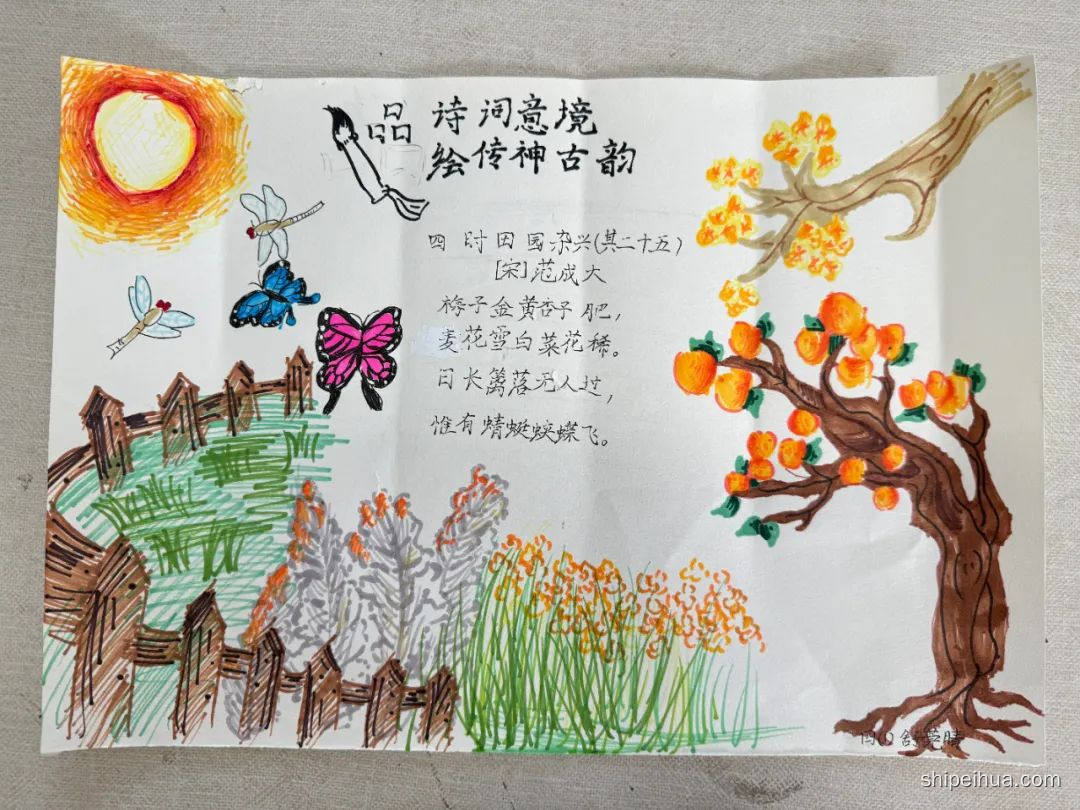 品 诗词意境
绘传神古韵
四时田园杂兴(其二十五)
[宋]范成大
梅子金黄杏子肥，
麦花雪白菜花稀。
日长篱落无人过，
惟有蜻蜓蛱蝶飞。
四(1)
shipeihua.com